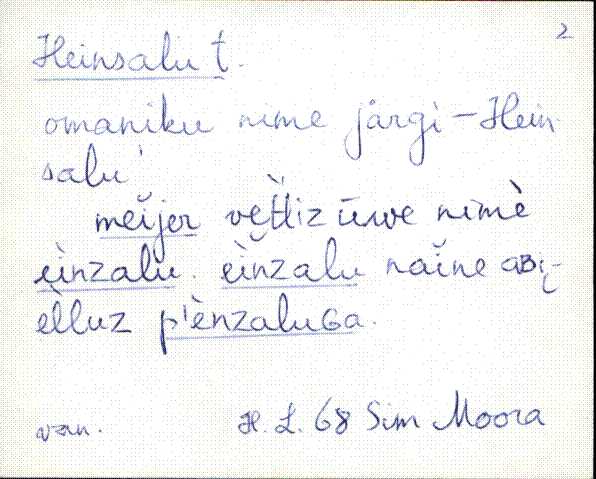 2
Heinsalu t.
omaniku nime järgi – Hein-
salu
meĭjer vet̆t̆liz ūwe nimè
èinzalu. èĭnzalu naĭne aʙi-
èlluz pìènzaluɢa.
van. H. L. 68 Sim Moora